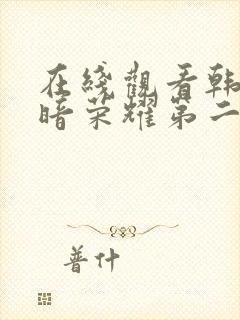 在线觀看韩
暗荣耀第二
普什